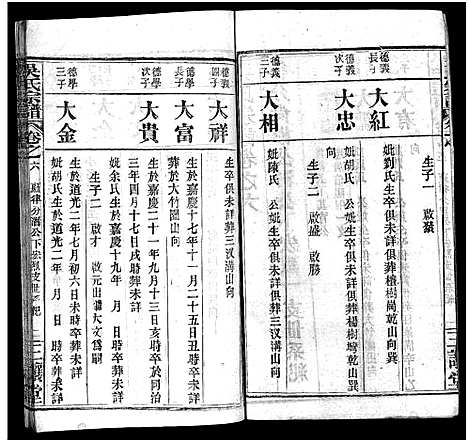 德義
長子
大紅
妣劉氏生卒俱未詳俱葬檀樹崗乾山向巽
生子一 啟猿
大忠
妣胡氏 公妣生卒俱未詳俱葬楊樹塆乾山向巽
生子二 啟盛 啟勝
德義
次子
大相
妣陳氏 公妣生卒俱未詳俱葬三汊溝山向
德義
四子
大祥
生卒俱未詳葬三汊溝山向
德學
長子
大富
生於嘉慶十七年十一月二十五日戌時卒未詳
葬於大竹園山向
德學
次子
大貴
生於嘉慶十二年九月十三亥時卒於同治
三年四月十七日戌時葬未詳
妣余氏生於嘉慶十九年 月 日 時卒葬未詳
生子二 啟才 啟元出繼大文爲嗣
德學
三子
大金
生於道光二年七月初六日未時卒葬未詳
妣胡氏生於道光二年 月 日 時卒葬未詳
吳氏宗譜 卷之六